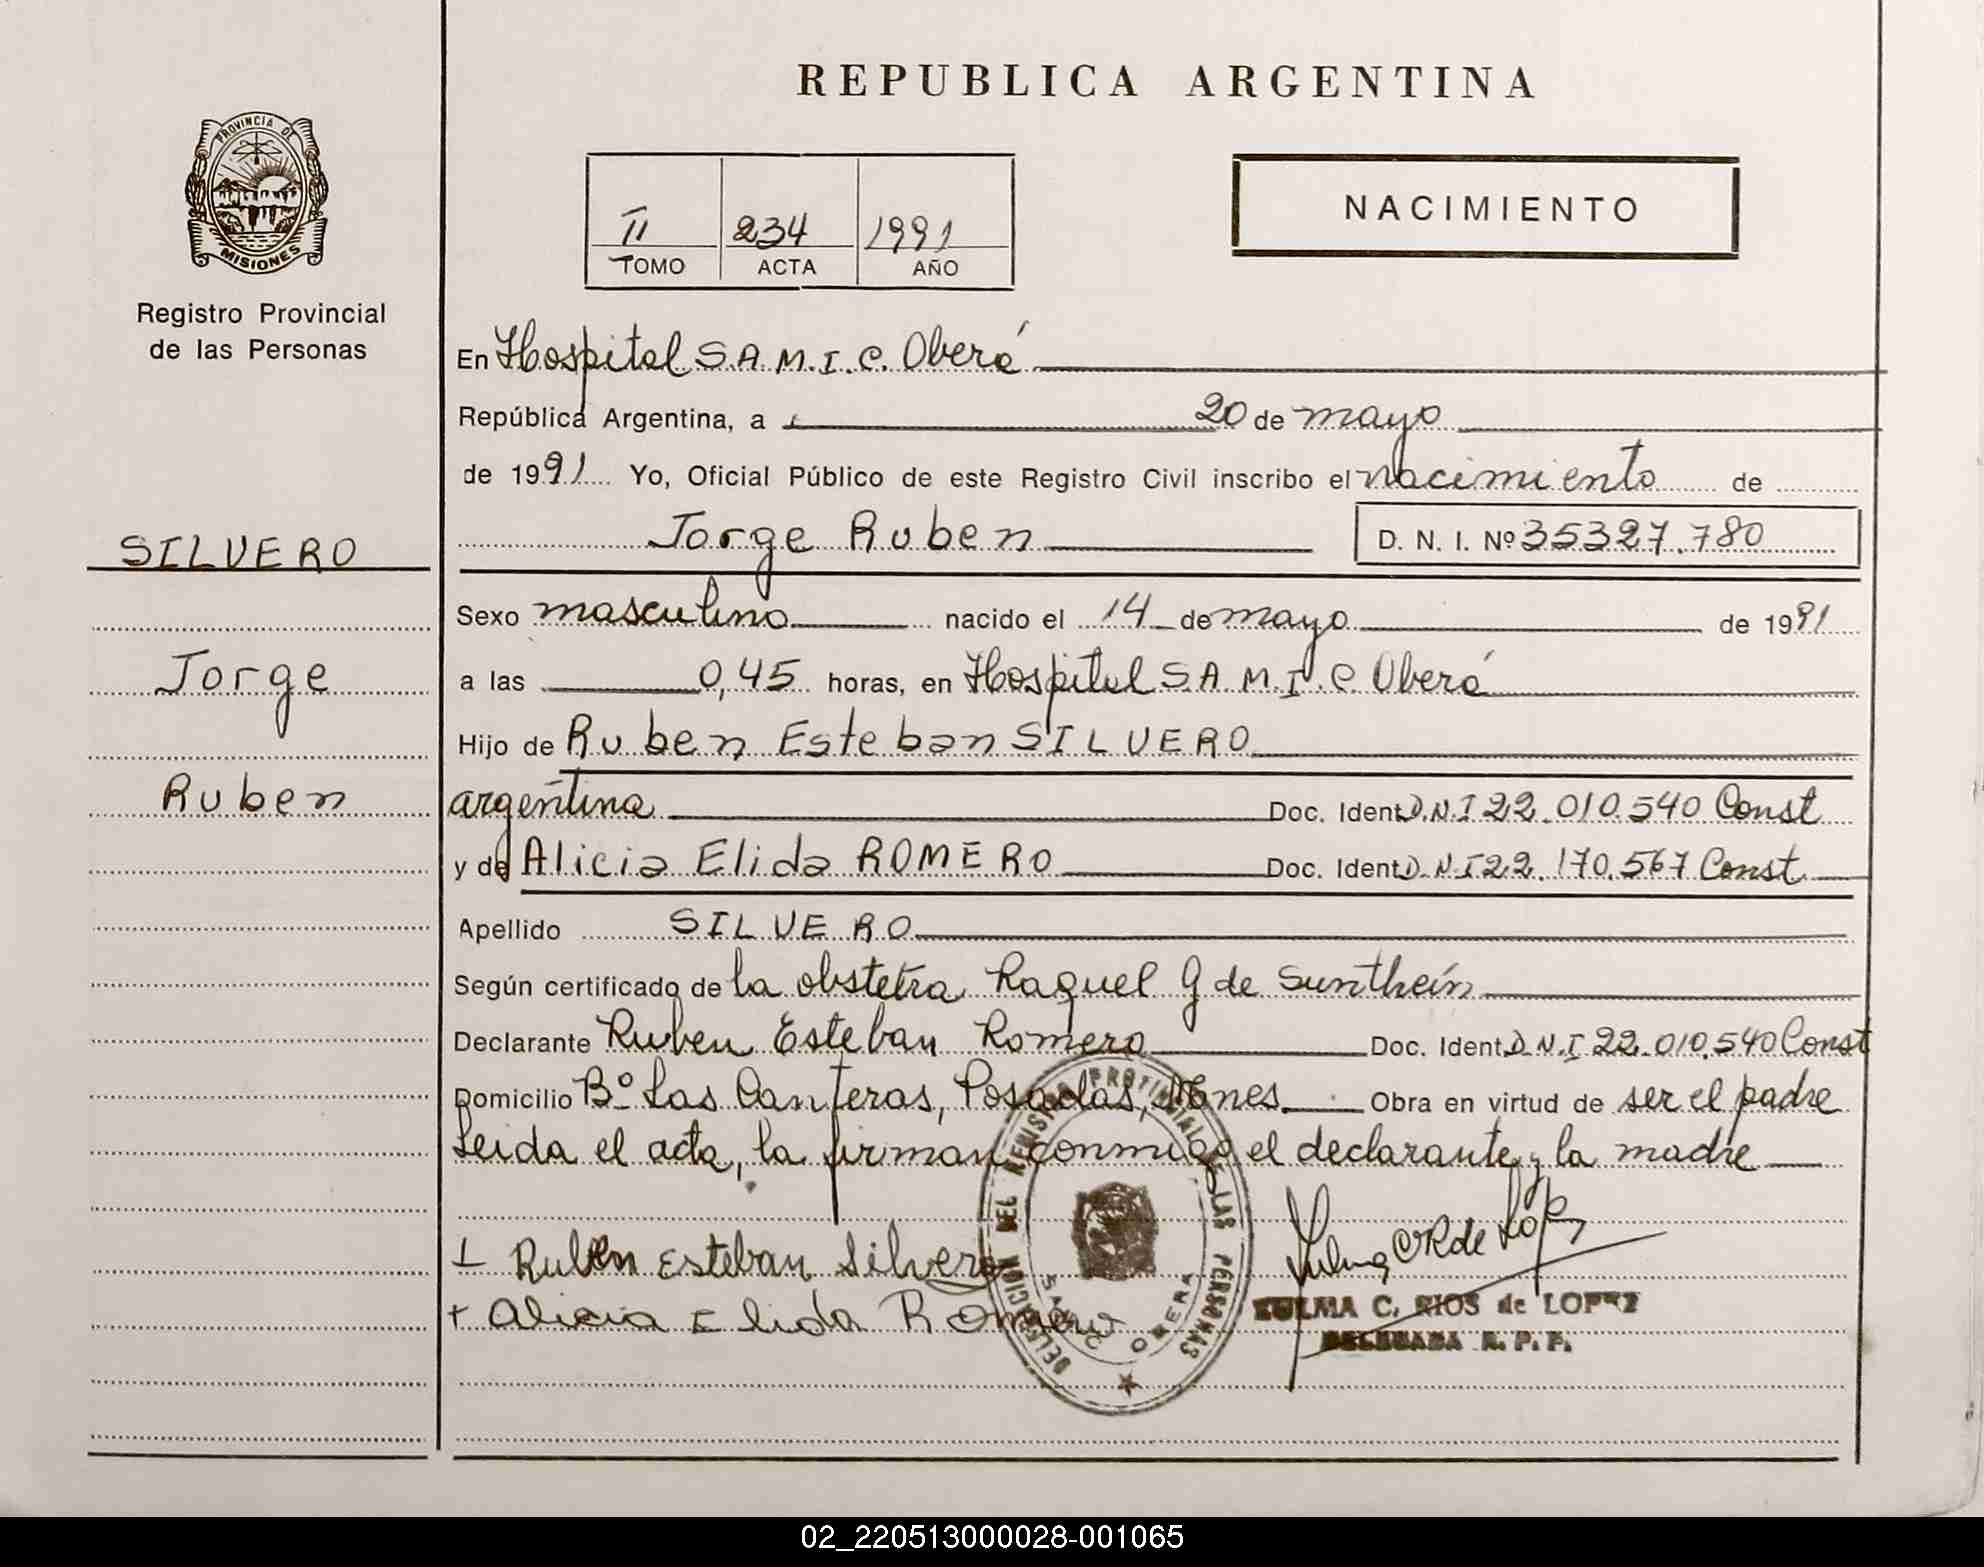 REPUBLICA ARGENTINA
PROVINCIA DE
MISIONES
Registro Provincial
de las Personas
II 234 1991
TOMO ACTA AÑO
NACIMIENTO
En Hospital S.A.M.I.C. Oberá
República Argentina, a 20 de mayo
de 1991 Yo, Oficial Público de este Registro Civil inscribo el nacimiento de
SILVERO
Jorge
Ruben
Jorge Ruben D. N. I. Nº 35327.780
Sexo masculino nacido el 14 de mayo de 1991
a las 0,45 horas, en Hospital S.A.M.I.C Oberá
Hijo de Ruben Esteban SILVERO
argentina Doc. Ident D.N.I 22.010.540 Const
y de Alicia Elida ROMERO Doc. Ident D.N.I 22.170.567 Const
Apellido SILVERO
Según certificado de la obstetra Raquel G de Sunthein
Declarante Ruben Esteban Romero Doc. Ident D.N.I 22.010.540 Const
Domicilio Bº Las Canteras, Posadas, Mnes. Obra en virtud de ser el padre
Leida el acta, la firman conmigo el declarante y la madre
Ruben Esteban Silvero
+ Alicia Elida Romero
DELEGACION DEL REGISTRO PROVINCIAL DE LAS PERSONAS
Zulma C R de Lopez
ZULMA C. RIOS de LOPEZ
DELEGADA R. P. P.
02_220513000028-001065